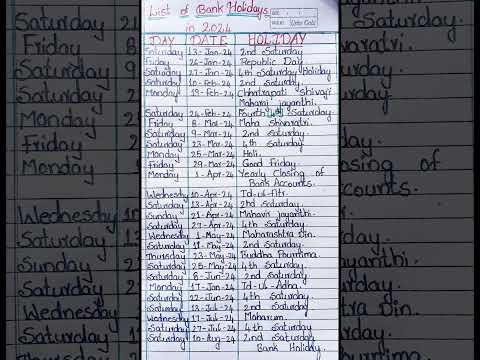 List of Bank Holidays
in 2024
DAY DATE HOLIDAY
Saturday 13-Jan-24 2nd Saturday
Friday 26-Jan-24 Republic Day
Saturday 27-Jan-24 4th Saturday Holiday
Saturday 10-Feb-24 2nd Saturday.
Monday 19-Feb-24 Chhatrapati Shivaji
Maharaj Jayanthi.
Saturday 24-Feb-24 Fourth Saturday.
Friday 8-Mar-24 Maha Shivaratri.
Saturday 9-Mar-24 2nd Saturday.
Saturday 23-Mar-24 4th Saturday
Monday 25-Mar-24 Holi.
Friday 29-Mar-24 Good Friday.
Monday 1-Apr-24 Yearly Closing of
Bank Accounts.
Wednesday 10-Apr-24 Id-ul-Fitr.
Saturday 13-Apr-24 2nd Saturday.
Sunday 21-Apr-24 Mahavir Jayanthi.
Saturday 27-Apr-24 4th Saturday
Wednesday 1-May-24 Maharashtra Din.
Saturday 11-May-24 2nd Saturday.
Thursday 23-May-24 Buddha Pournima
Saturday 25-May-24 4th Saturday.
Saturday 8-Jun-24 2nd Saturday
Monday 17-Jun-24 Id-ul-Adha.
Saturday 22-Jun-24 4th Saturday
Saturday 13-Jul-24 2nd Saturday
Wednesday 17-Jul-24 Maharum.
Saturday 27-Jul-24 4th Saturday
Saturday 10-Aug-24 2nd Saturday
Bank Holiday.